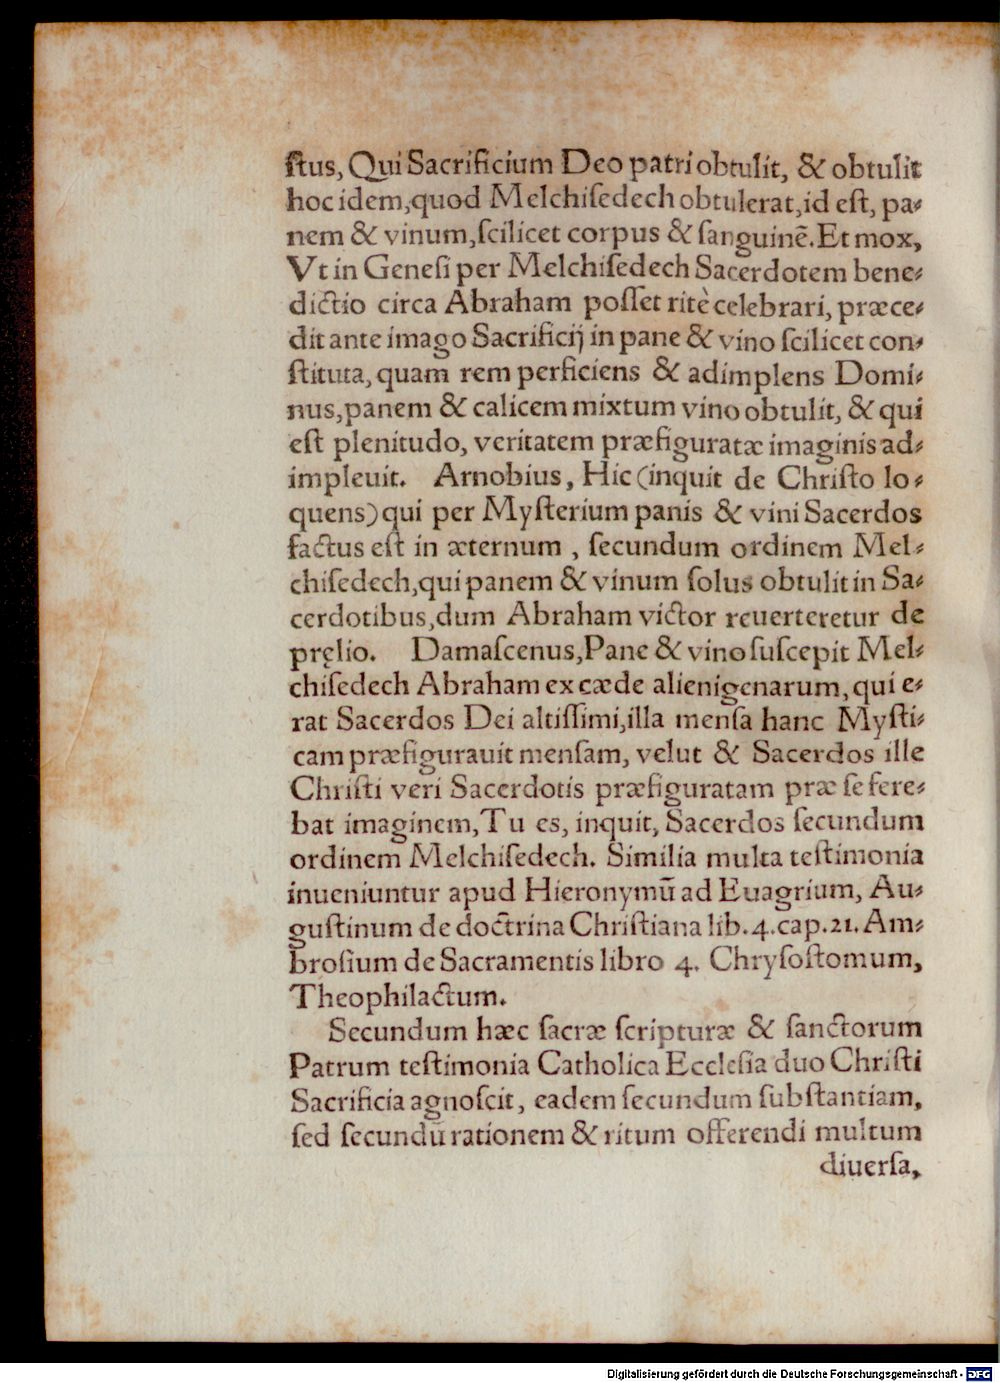 ſtus, Qui Sacrificium Deo patri obtulit, & obtulit
hoc idem, quod Melchiſedech obtulerat, id eſt, pa-
nem & vinum, ſcilicet corpus & ſanguinē. Et mox,
Vt in Geneſi per Melchiſedech Sacerdotem bene-
dictio circa Abraham poſſet ritè celebrari, præce-
dit ante imago Sacrificij in pane & vino ſcilicet con-
ſtituta, quam rem perficiens & adimplens Domi-
nus, panem & calicem mixtum vino obtulit, & qui
eſt plenitudo, veritatem præfiguratæ imaginis ad-
impleuit. Arnobius, Hic (inquit de Chriſto lo-
quens) qui per Myſterium panis & vini Sacerdos
factus eſt in æternum, ſecundum ordinem Mel-
chiſedech, qui panem & vinum ſolus obtulit in Sa-
cerdotibus, dum Abraham victor reuerteretur de
pręlio. Damaſcenus, Pane & vino ſuſcepit Mel-
chiſedech Abraham ex cæde alienigenarum, qui e-
rat Sacerdos Dei altiſſimi, illa menſa hanc Myſti-
cam præfigurauit menſam, velut & Sacerdos ille
Chriſti veri Sacerdotis præfiguratam præ ſe fere-
bat imaginem, Tu es, inquit, Sacerdos ſecundum
ordinem Melchiſedech. Similia multa teſtimonia
inueniuntur apud Hieronymū ad Euagrium, Au-
guſtinum de doctrina Chriſtiana lib. 4. cap. 21. Am-
broſium de Sacramentis libro 4. Chryſoſtomum,
Theophilactum.
Secundum hæc ſacræ ſcripturæ & ſanctorum
Patrum teſtimonia Catholica Eccleſia duo Chriſti
Sacrificia agnoſcit, eadem ſecundum ſubſtantiam,
ſed ſecundū rationem & ritum offerendi multum
diuerſa,
Digitalisierung gefördert durch die Deutsche Forschungsgemeinschaft - DFG